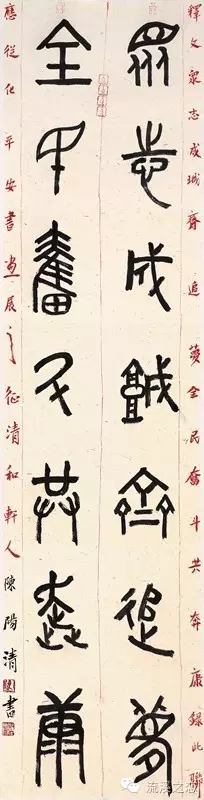 釋文衆志成城齊追夢全民奮斗共奔康錄此聯
眾志成城齊追夢
全民奮斗共奔康
應從化平安書畫展之征清和軒人陳陽清書
流溪之恋